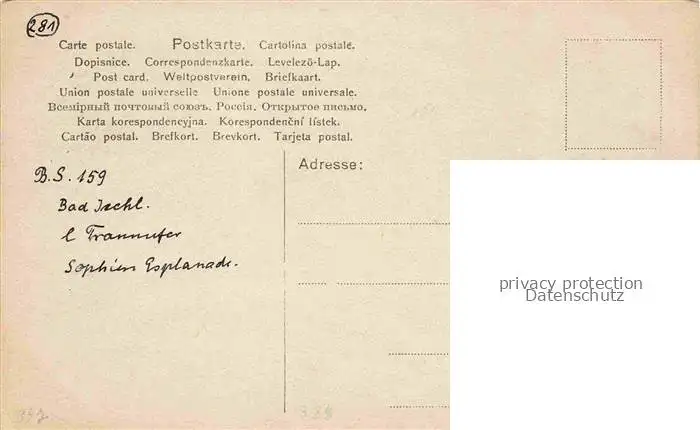 281
Carte postale. Postkarte. Cartolina postale.
Dopisnice. Correspondenzkarte. Levelező-Lap.
Post card. Weltpostverein. Briefkaart.
Union postale universelle Unione postale universale.
Всемірный почтовый союзъ. Россія. Открытое письмо.
Karta korespondencyjna. Korespondenční lístek.
Cartão postal. Brefkort. Brevkort. Tarjeta postal.
Adresse:
B.S. 159
Bad Ischl.
l Traunufer
Sophien Esplanade.
privacy protection
Datenschutz